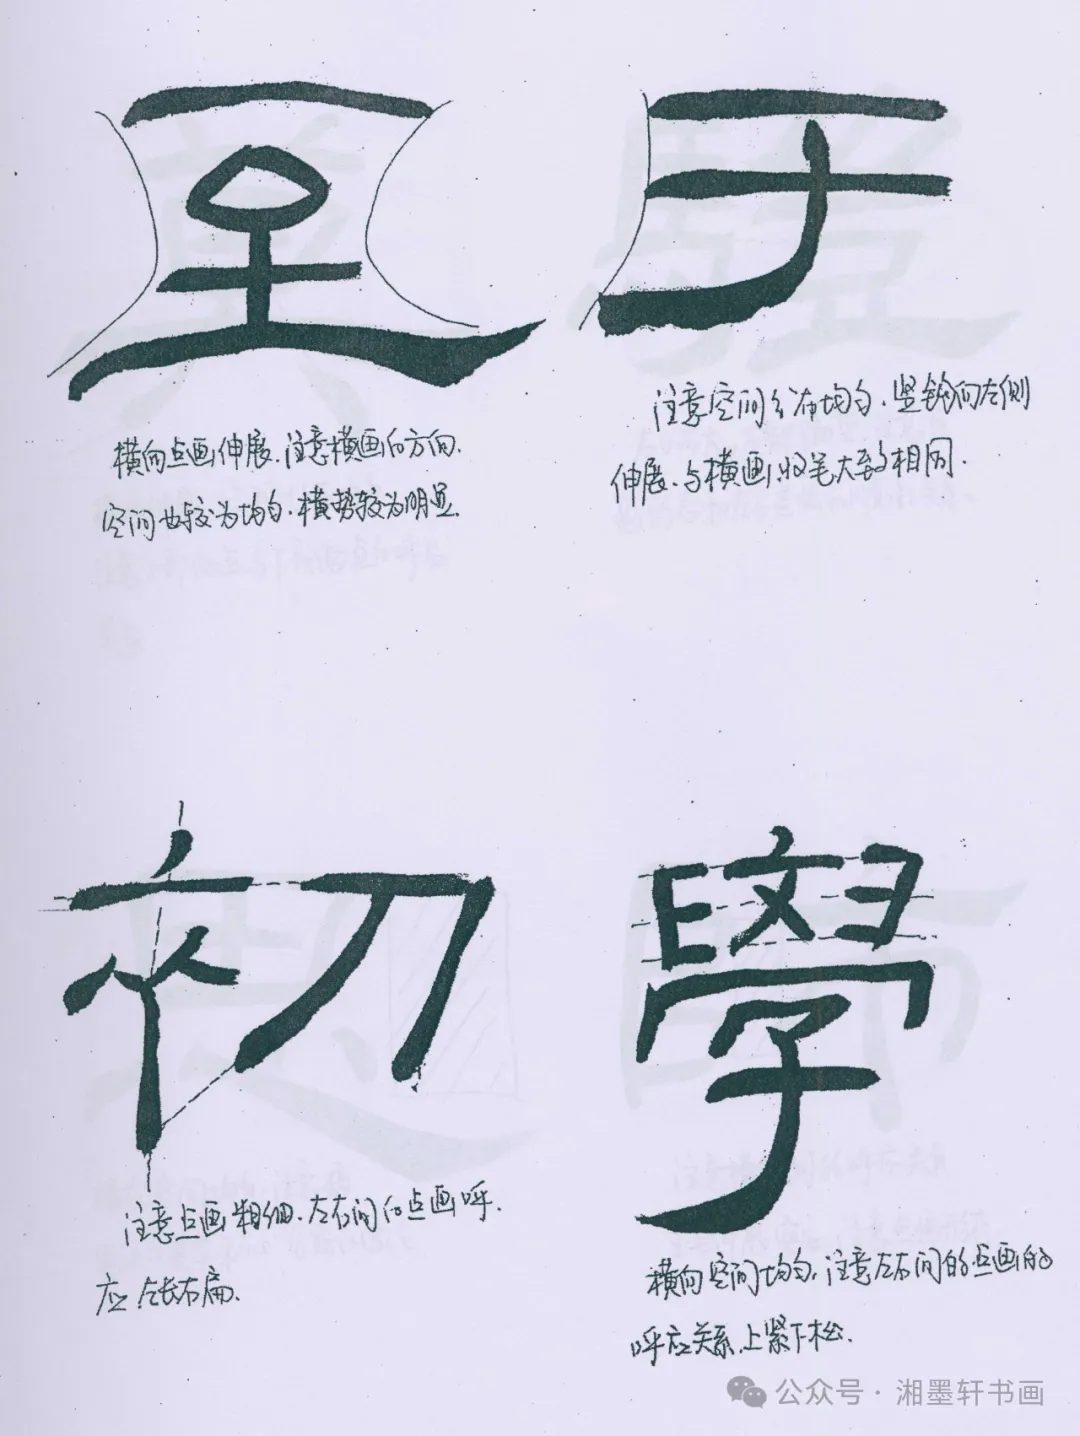 至
于
横向点画伸展、注意横画的方向、
空间也较为均匀、横势较为明显.
注意空间分布均匀、竖钩向左侧
伸展、与横画收笔大致相同.
初
學
注意点画粗细、左右间的点画呼、
应、左长右扁、
横向空间均匀、注意左右间的点画的
呼应关系、上紧下松.
公众号·湘墨轩书画